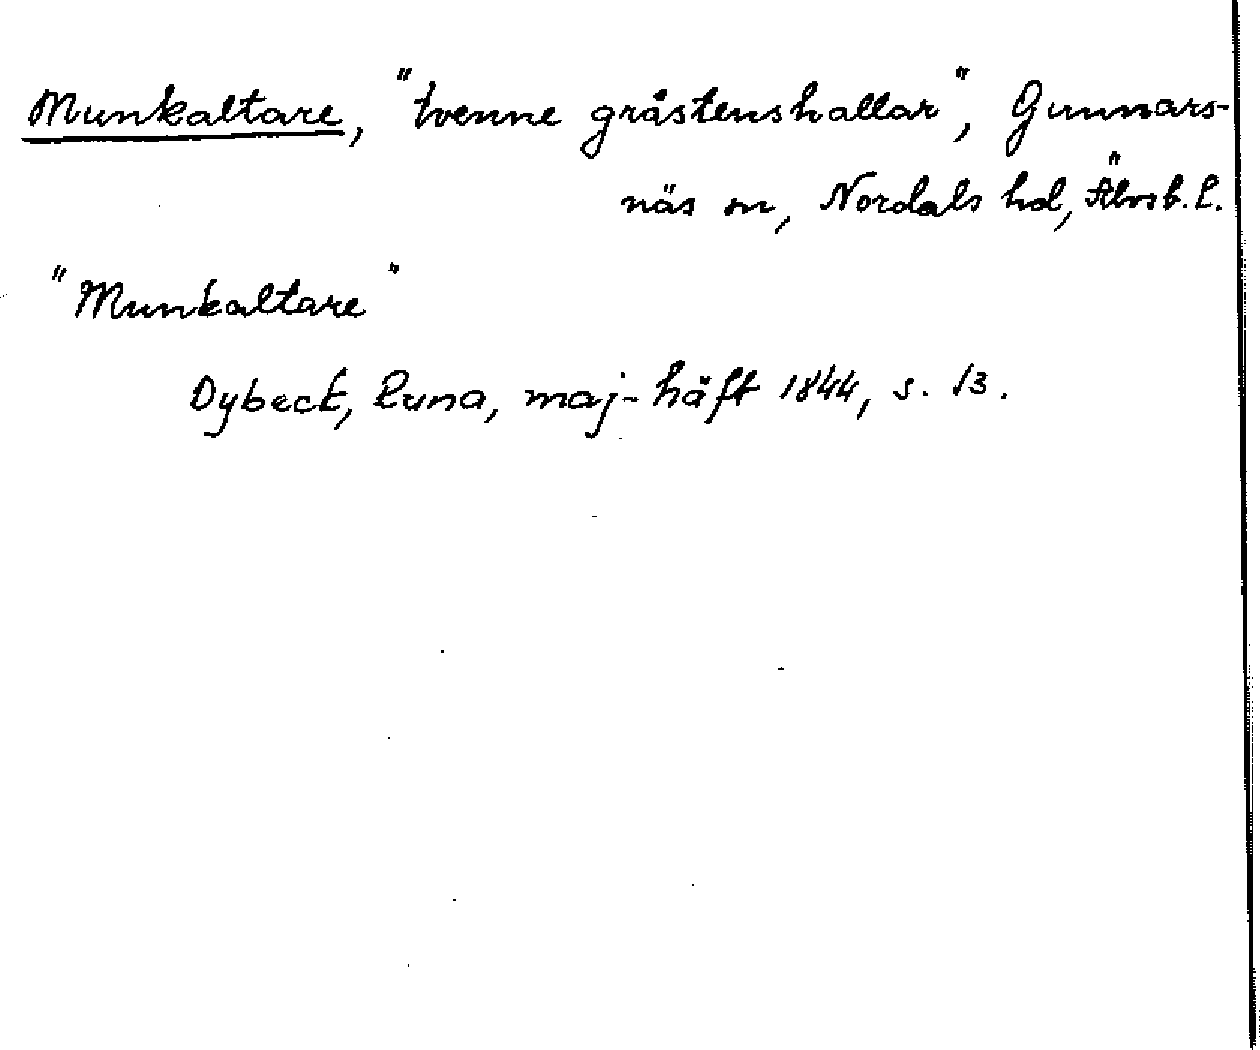 Munkaltare, "tvenne gråstenshallar", Gunnars-
näs sn, Nordals hd, Älvsb. l.
"Munkaltare"
Dybeck, Runa, maj-häft 1844, s. 13.